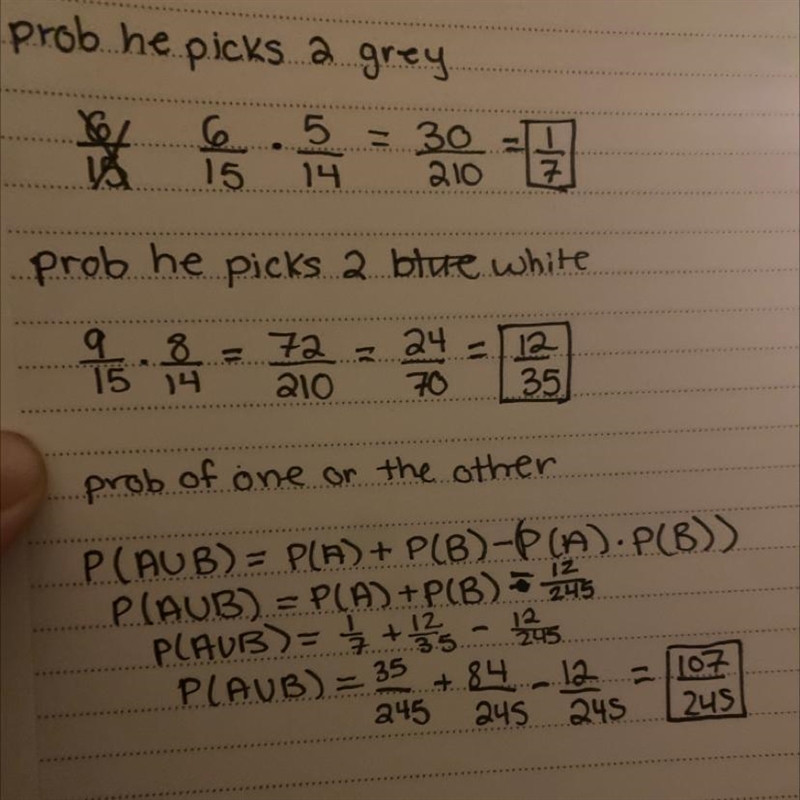 prob he picks 2 grey
6/15 6/15 · 5/14 = 30/210 = 1/7
prob he picks 2 blue white
9/15 · 8/14 = 72/210 = 24/70 = 12/35
prob of one or the other
P(A∪B) = P(A) + P(B) - (P(A) · P(B))
P(A∪B) = P(A) + P(B) - 12/245
P(A∪B) = 1/7 + 12/35 - 12/245
P(A∪B) = 35/245 + 84/245 - 12/245 = 107/245